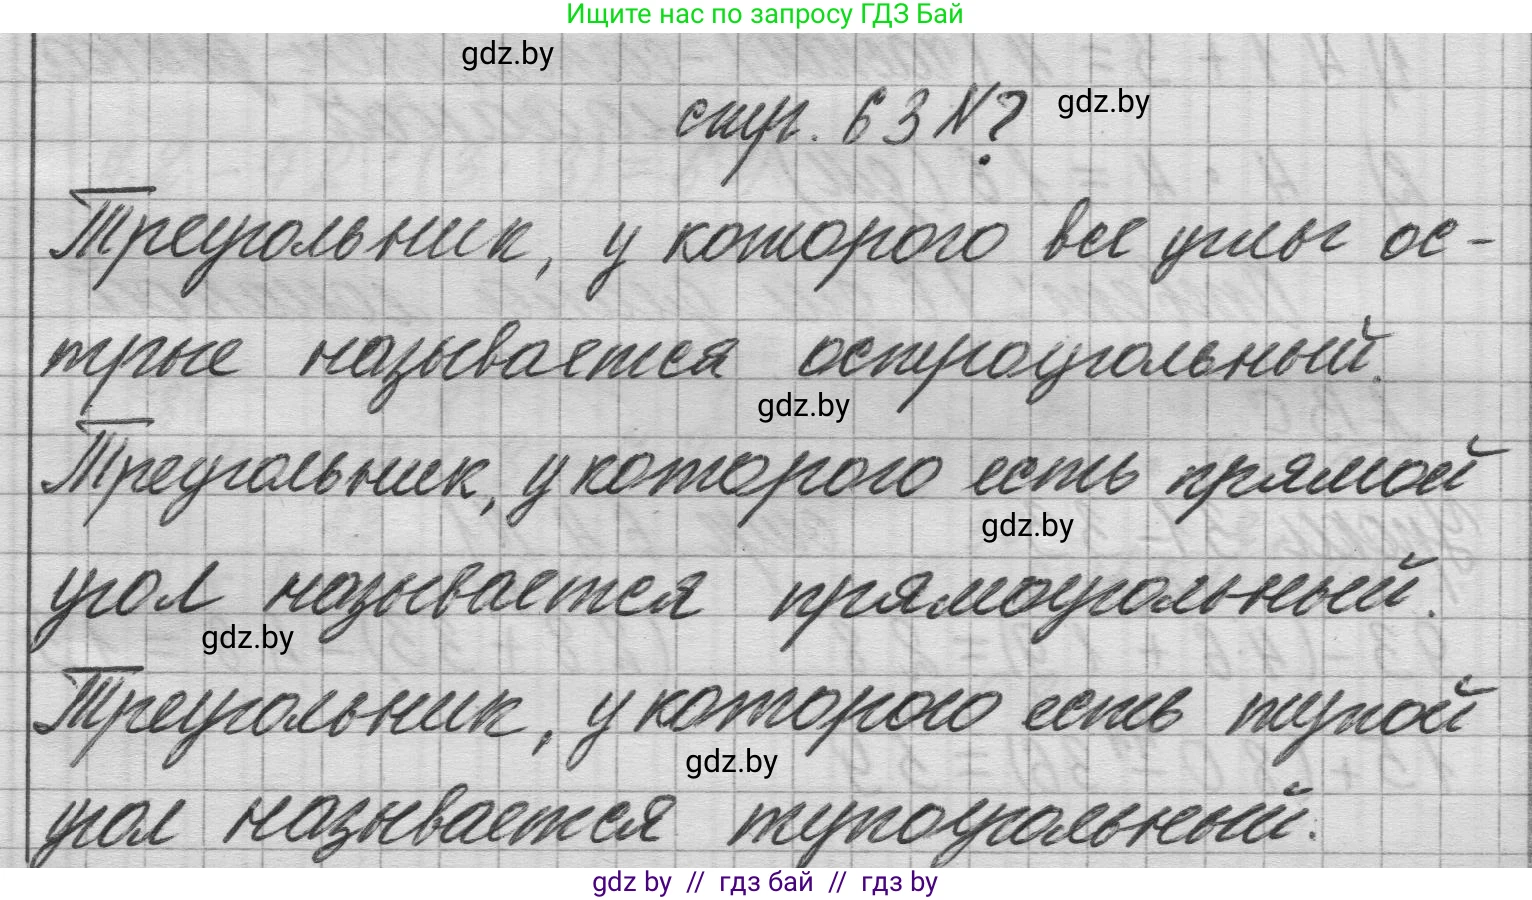 Ищите нас по запросу ГДЗ Бай
gdz.by
стр. 63 N? gdz.by
Треугольник, у которого все углы ос-
трые называется остроугольный.
gdz.by
Треугольник, у которого есть прямой
gdz.by
угол называется прямоугольный.
gdz.by
Треугольник, у которого есть тупой
gdz.by
угол называется тупоугольный.
gdz by // гдз бай // гдз by